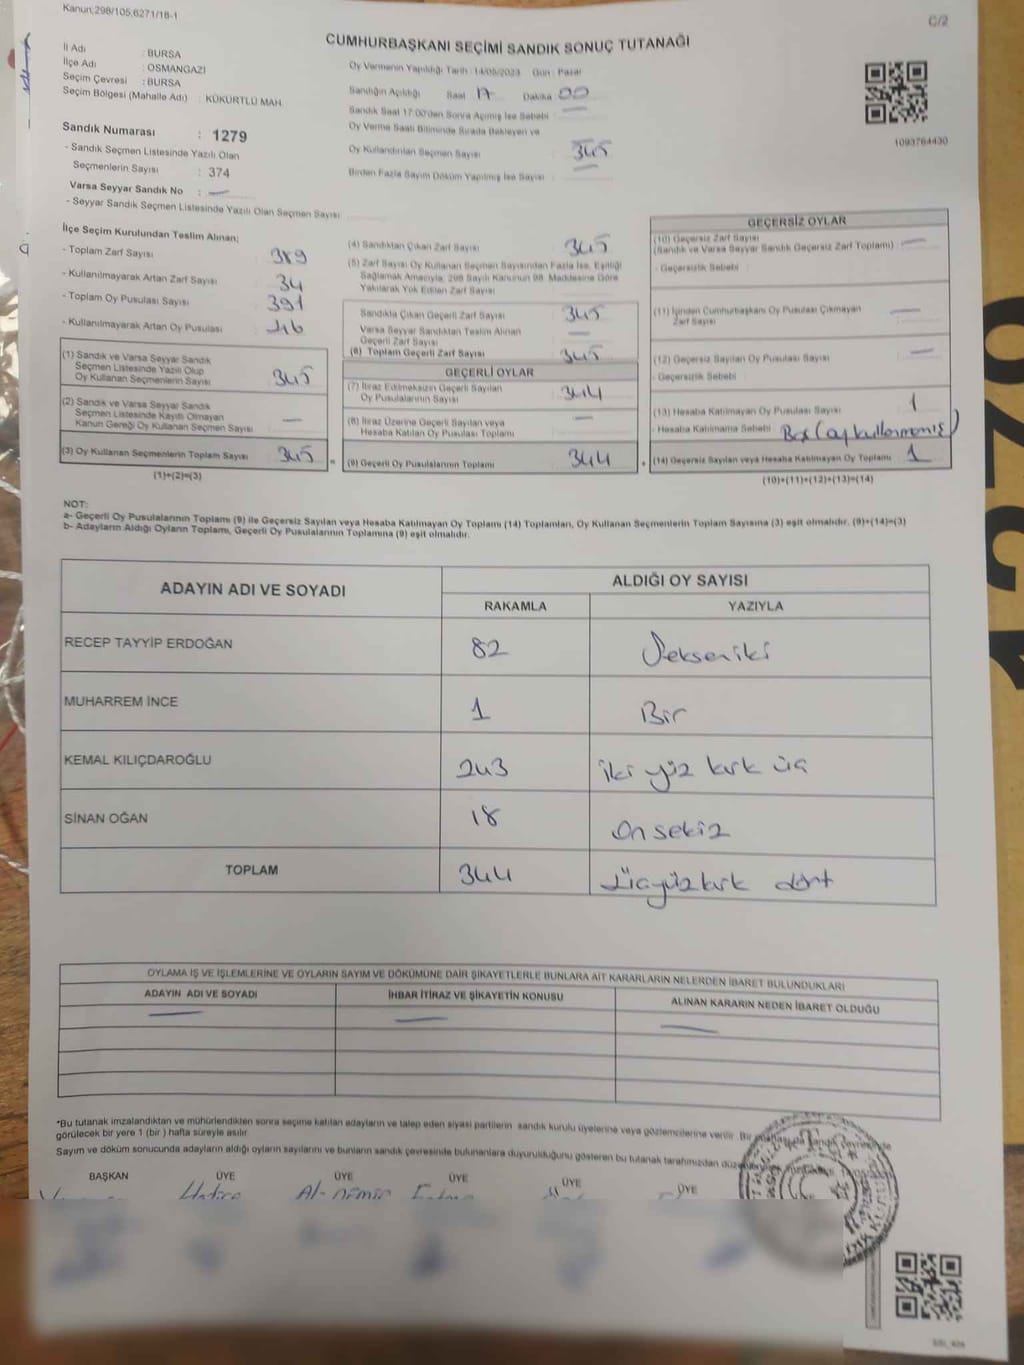 Kanun;298/105,6271/18-1
C/2
CUMHURBAŞKANI SEÇİMİ SANDIK SONUÇ TUTANAĞI
İl Adı : BURSA
İlçe Adı : OSMANGAZİ
Seçim Çevresi : BURSA
Seçim Bölgesi (Mahalle Adı) : KÜKÜRTLÜ MAH.
Sandık Numarası : 1279
- Sandık Seçmen Listesinde Yazılı Olan
Seçmenlerin Sayısı : 374
Varsa Seyyar Sandık No : —
- Seyyar Sandık Seçmen Listesinde Yazılı Olan Seçmen Sayısı
Oy Vermenin Yapıldığı Tarih : 14/05/2023 Gün : Pazar
Sandığın Açıldığı Saat 17 Dakika 00
Sandık Saat 17:00'den Sonra Açılmış İse Sebebi : —
Oy Verme Saati Bitiminde Sırada Bekleyen ve
Oy Kullandırılan Seçmen Sayısı : 345
Birden Fazla Sayım Döküm Yapılmış İse Sayısı : —
1093764430
İlçe Seçim Kurulundan Teslim Alınan;
- Toplam Zarf Sayısı : 389
- Kullanılmayarak Artan Zarf Sayısı : 34
- Toplam Oy Pusulası Sayısı : 391
- Kullanılmayarak Artan Oy Pusulası : 46
(1) Sandık ve Varsa Seyyar Sandık
Seçmen Listesinde Yazılı Olup
Oy Kullanan Seçmenlerin Sayısı 345
(2) Sandık ve Varsa Seyyar Sandık
Seçmen Listesinde Kayıtlı Olmayan
Kanun Gereği Oy Kullanan Seçmen Sayısı —
(3) Oy Kullanan Seçmenlerin Toplam Sayısı 345
(1)+(2)=(3)
(4) Sandıktan Çıkan Zarf Sayısı : 345
(5) Zarf Sayısı Oy Kullanan Seçmen Sayısından Fazla İse, Eşitliği
Sağlamak Amacıyla, 298 Sayılı Kanunun 98. Maddesine Göre
Yakılarak Yok Edilen Zarf Sayısı :
Sandıkta Çıkan Geçerli Zarf Sayısı : 345
Varsa Seyyar Sandıktan Teslim Alınan
Geçerli Zarf Sayısı : —
(6) Toplam Geçerli Zarf Sayısı : 345
GEÇERLİ OYLAR
(7) İtiraz Edilmeksizin Geçerli Sayılan
Oy Pusulalarının Sayısı : 344
(8) İtiraz Üzerine Geçerli Sayılan veya
Hesaba Katılan Oy Pusulası Toplamı : —
= (9) Geçerli Oy Pusulalarının Toplamı : 344
GEÇERSİZ OYLAR
(10) Geçersiz Zarf Sayısı
(Sandık ve Varsa Seyyar Sandık Geçersiz Zarf Toplamı) : —
- Geçersizlik Sebebi :
(11) İçinden Cumhurbaşkanı Oy Pusulası Çıkmayan
Zarf Sayısı : —
(12) Geçersiz Sayılan Oy Pusulası Sayısı : —
- Geçersizlik Sebebi :
(13) Hesaba Katılmayan Oy Pusulası Sayısı : 1
- Hesaba Katılmama Sebebi : Boş (oy kullanmamış)
+ (14) Geçersiz Sayılan veya Hesaba Katılmayan Oy Toplamı : 1
(10)+(11)+(12)+(13)=(14)
NOT:
a- Geçerli Oy Pusulalarının Toplamı (9) ile Geçersiz Sayılan veya Hesaba Katılmayan Oy Toplamı (14) Toplamları, Oy Kullanan Seçmenlerin Toplam Sayısına (3) eşit olmalıdır. (9)+(14)=(3)
b- Adayların Aldığı Oyların Toplamı, Geçerli Oy Pusulalarının Toplamına (9) eşit olmalıdır.
ADAYIN ADI VE SOYADI ALDIĞI OY SAYISI
RAKAMLA YAZIYLA
RECEP TAYYİP ERDOĞAN 82 Seksen iki
MUHARREM İNCE 1 Bir
KEMAL KILIÇDAROĞLU 243 iki yüz kırk üç
SİNAN OĞAN 18 On sekiz
TOPLAM 344 Üçyüz kırk dört
OYLAMA İŞ VE İŞLEMLERİNE VE OYLARIN SAYIM VE DÖKÜMÜNE DAİR ŞİKAYETLERLE BUNLARA AİT KARARLARIN NELERDEN İBARET BULUNDUKLARI
ADAYIN ADI VE SOYADI İHBAR İTİRAZ VE ŞİKAYETİN KONUSU ALINAN KARARIN NEDEN İBARET OLDUĞU
— — —
*Bu tutanak imzalandıktan ve mühürlendikten sonra seçime katılan adayların ve talep eden siyasi partilerin sandık kurulu üyelerine veya gözlemcilerine verilir. Bir
görülecek bir yere 1 (bir) hafta süreyle asılır.
Sayım ve döküm sonucunda adayların aldığı oyların sayılarını ve bunların sandık çevresinde bulunanlara duyurulduğunu gösteren bu tutanak tarafımızdan
BAŞKAN ÜYE ÜYE ÜYE ÜYE ÜYE